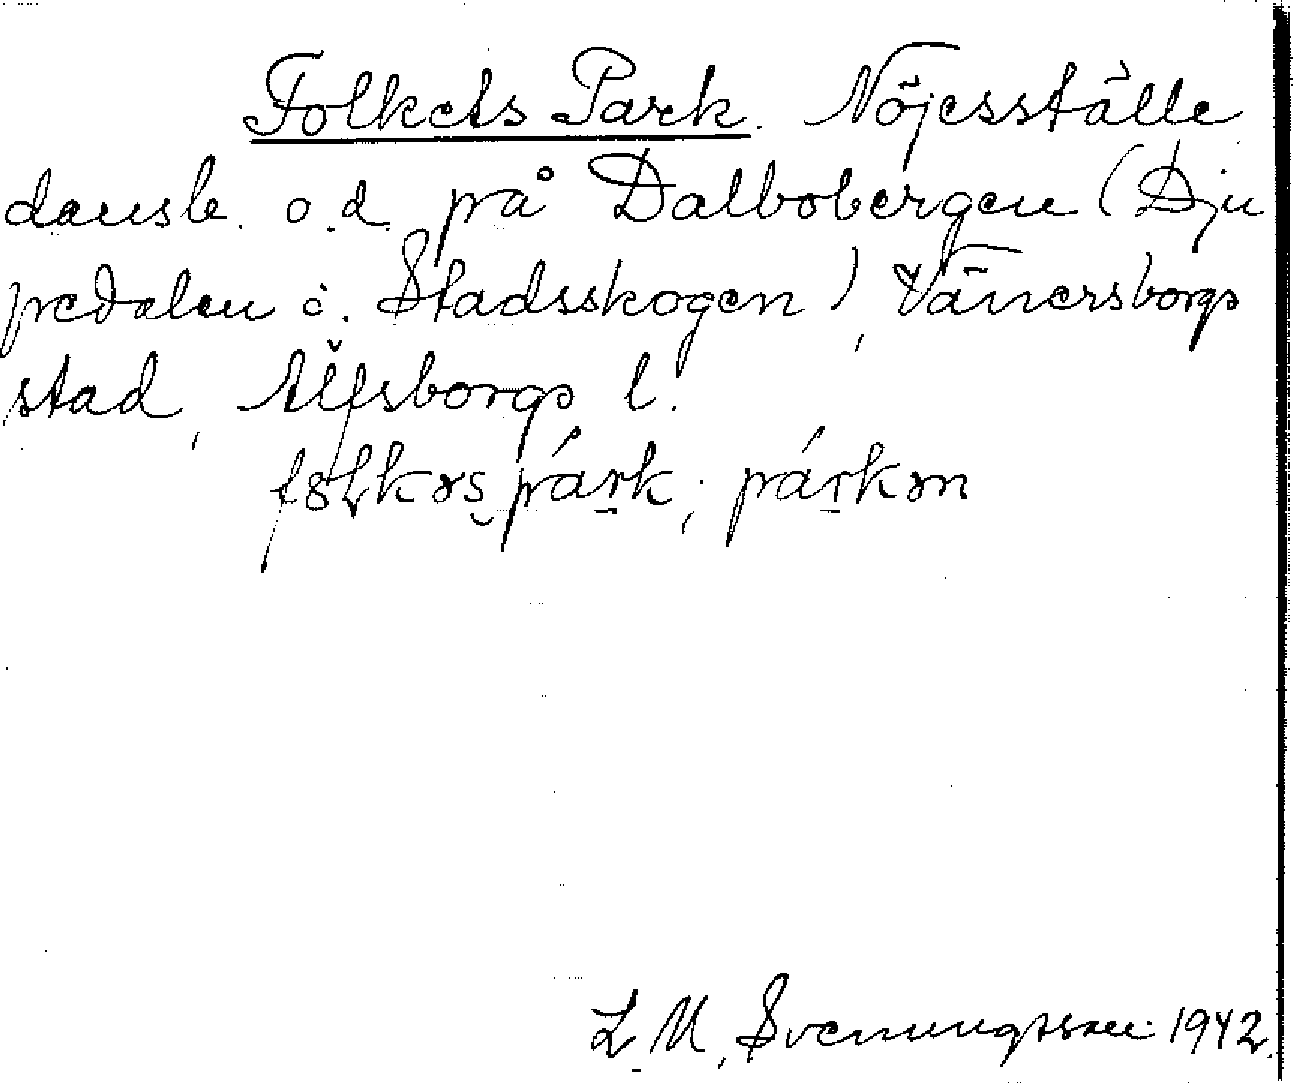 Folkets Park. Nöjesställe
dansb. o.d. på Dalbobergen (Dju
pedalen i. Stadsskogen), Vänersborgs
stad, Älfsborgs l.
párk, párkən
L. M. Svenungsson 1942.